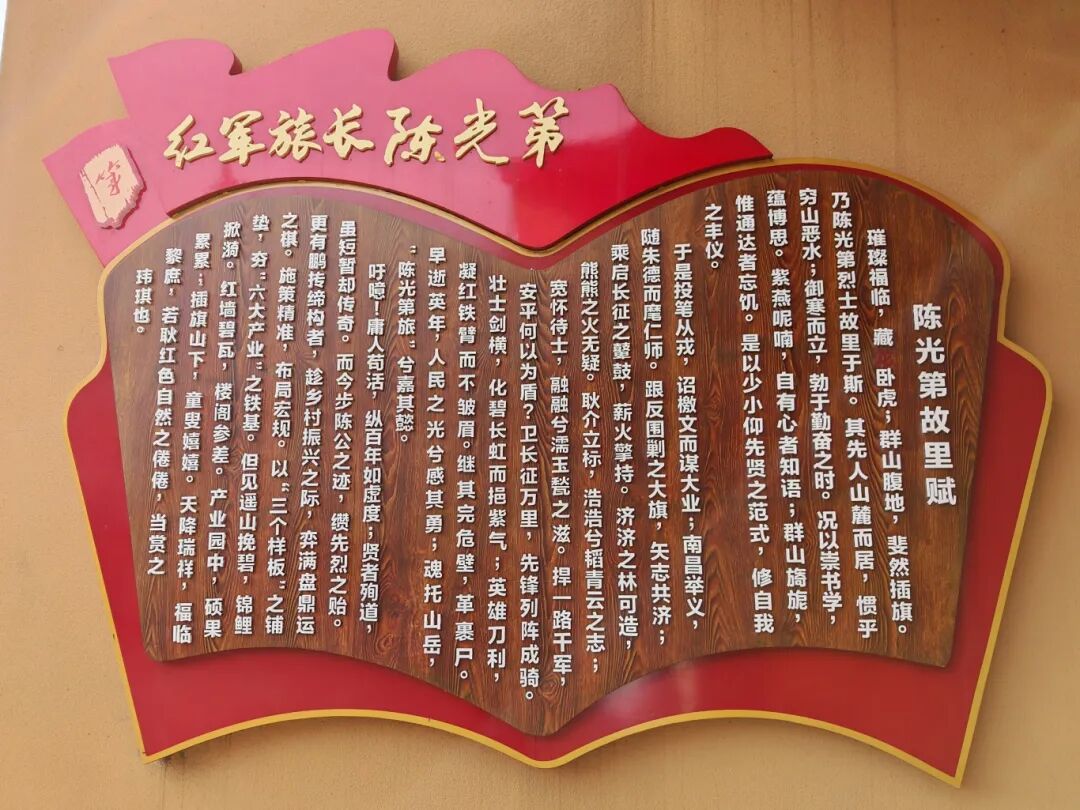 红军旅长陈光第
陈光第故里赋
璀璨福临，藏 卧虎；群山腹地，斐然插旗。
乃陈光第烈士故里于斯。其先人山麓而居，惯乎
穷山恶水；御寒而立，勃于勤奋之时。况以崇书学，
蕴博思。紫燕呢喃，自有心者知语；群山旖旎，
惟通达者忘饥。是以少小仰先贤之范式，修自我
之丰仪。
于是投笔从戎，诏檄文而谋大业；南昌举义，
随朱德而麾仁师。跟反围剿之大旗，矢志共济；
乘启长征之鼙鼓，薪火擎持。济济之林可造，
熊熊之火无疑。耿介立标，浩浩兮韬青云之志；
宽怀待士，融融兮濡玉甃之滋。捍一路千军，
安平何以为盾？卫长征万里，先锋列阵成骑。
壮士剑横，化碧长虹而挹紫气；英雄刀利，
凝红铁臂而不皱眉。继其完危壁，革裹尸。
早逝英年，人民之光兮感其勇；魂托山岳，
“陈光第旅”兮嘉其懿。
吁噫！庸人苟活，纵百年如虚度；贤者殉道，
虽短暂却传奇。而今步陈公之迹，缵先烈之贻。
更有鹏抟缔构者，趁乡村振兴之际，弈满盘鼎运
之棋。施策精准，布局宏规。以“三个样板”之铺
垫，夯“六大产业”之铁基。但见遥山挽碧，锦鲤
掀漪。红墙碧瓦，楼阁参差。产业园中，硕果
累累；插旗山下，童叟嬉嬉。天降瑞祥，福临
黎庶，若耿红色自然之倦倦，当赏之
玮琪也。